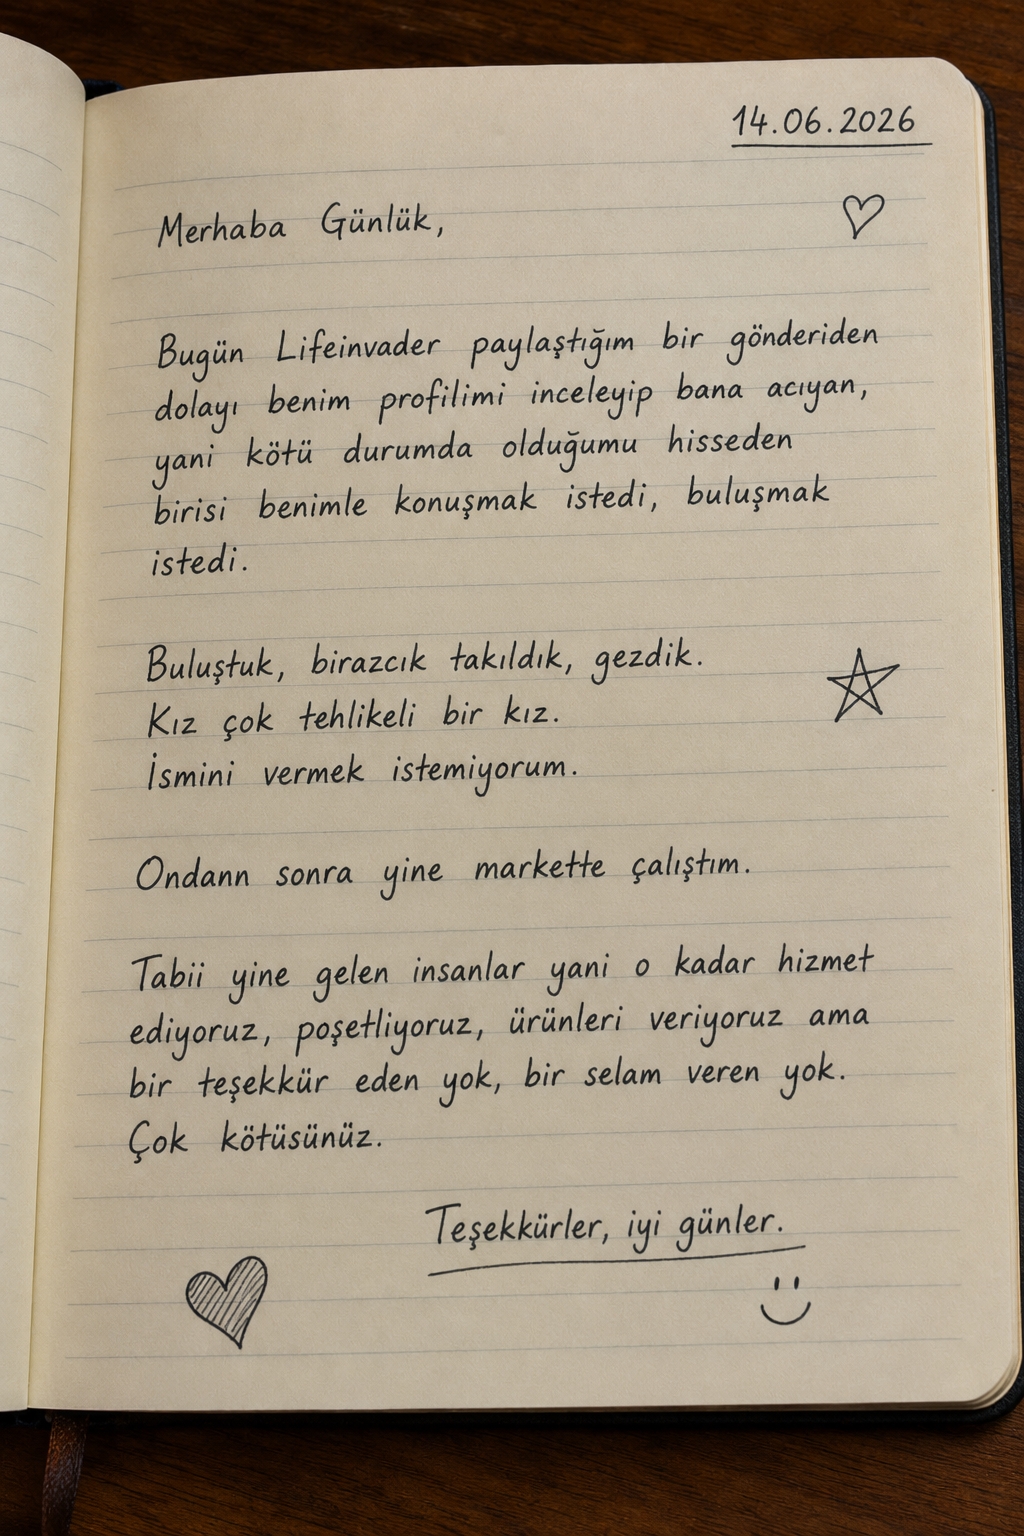 14.06.2026
Merhaba Günlük,
Bugün Lifeinvader paylaştığım bir gönderiden
dolayı benim profilimi inceleyip bana acıyan,
yani kötü durumda olduğumu hisseden
birisi benimle konuşmak istedi, buluşmak
istedi.
Buluştuk, birazcık takıldık, gezdik.
Kız çok tehlikeli bir kız.
İsmini vermek istemiyorum.
Ondann sonra yine markette çalıştım.
Tabii yine gelen insanlar yani o kadar hizmet
ediyoruz, poşetliyoruz, ürünleri veriyoruz ama
bir teşekkür eden yok, bir selam veren yok.
Çok kötüsünüz.
Teşekkürler, iyi günler.